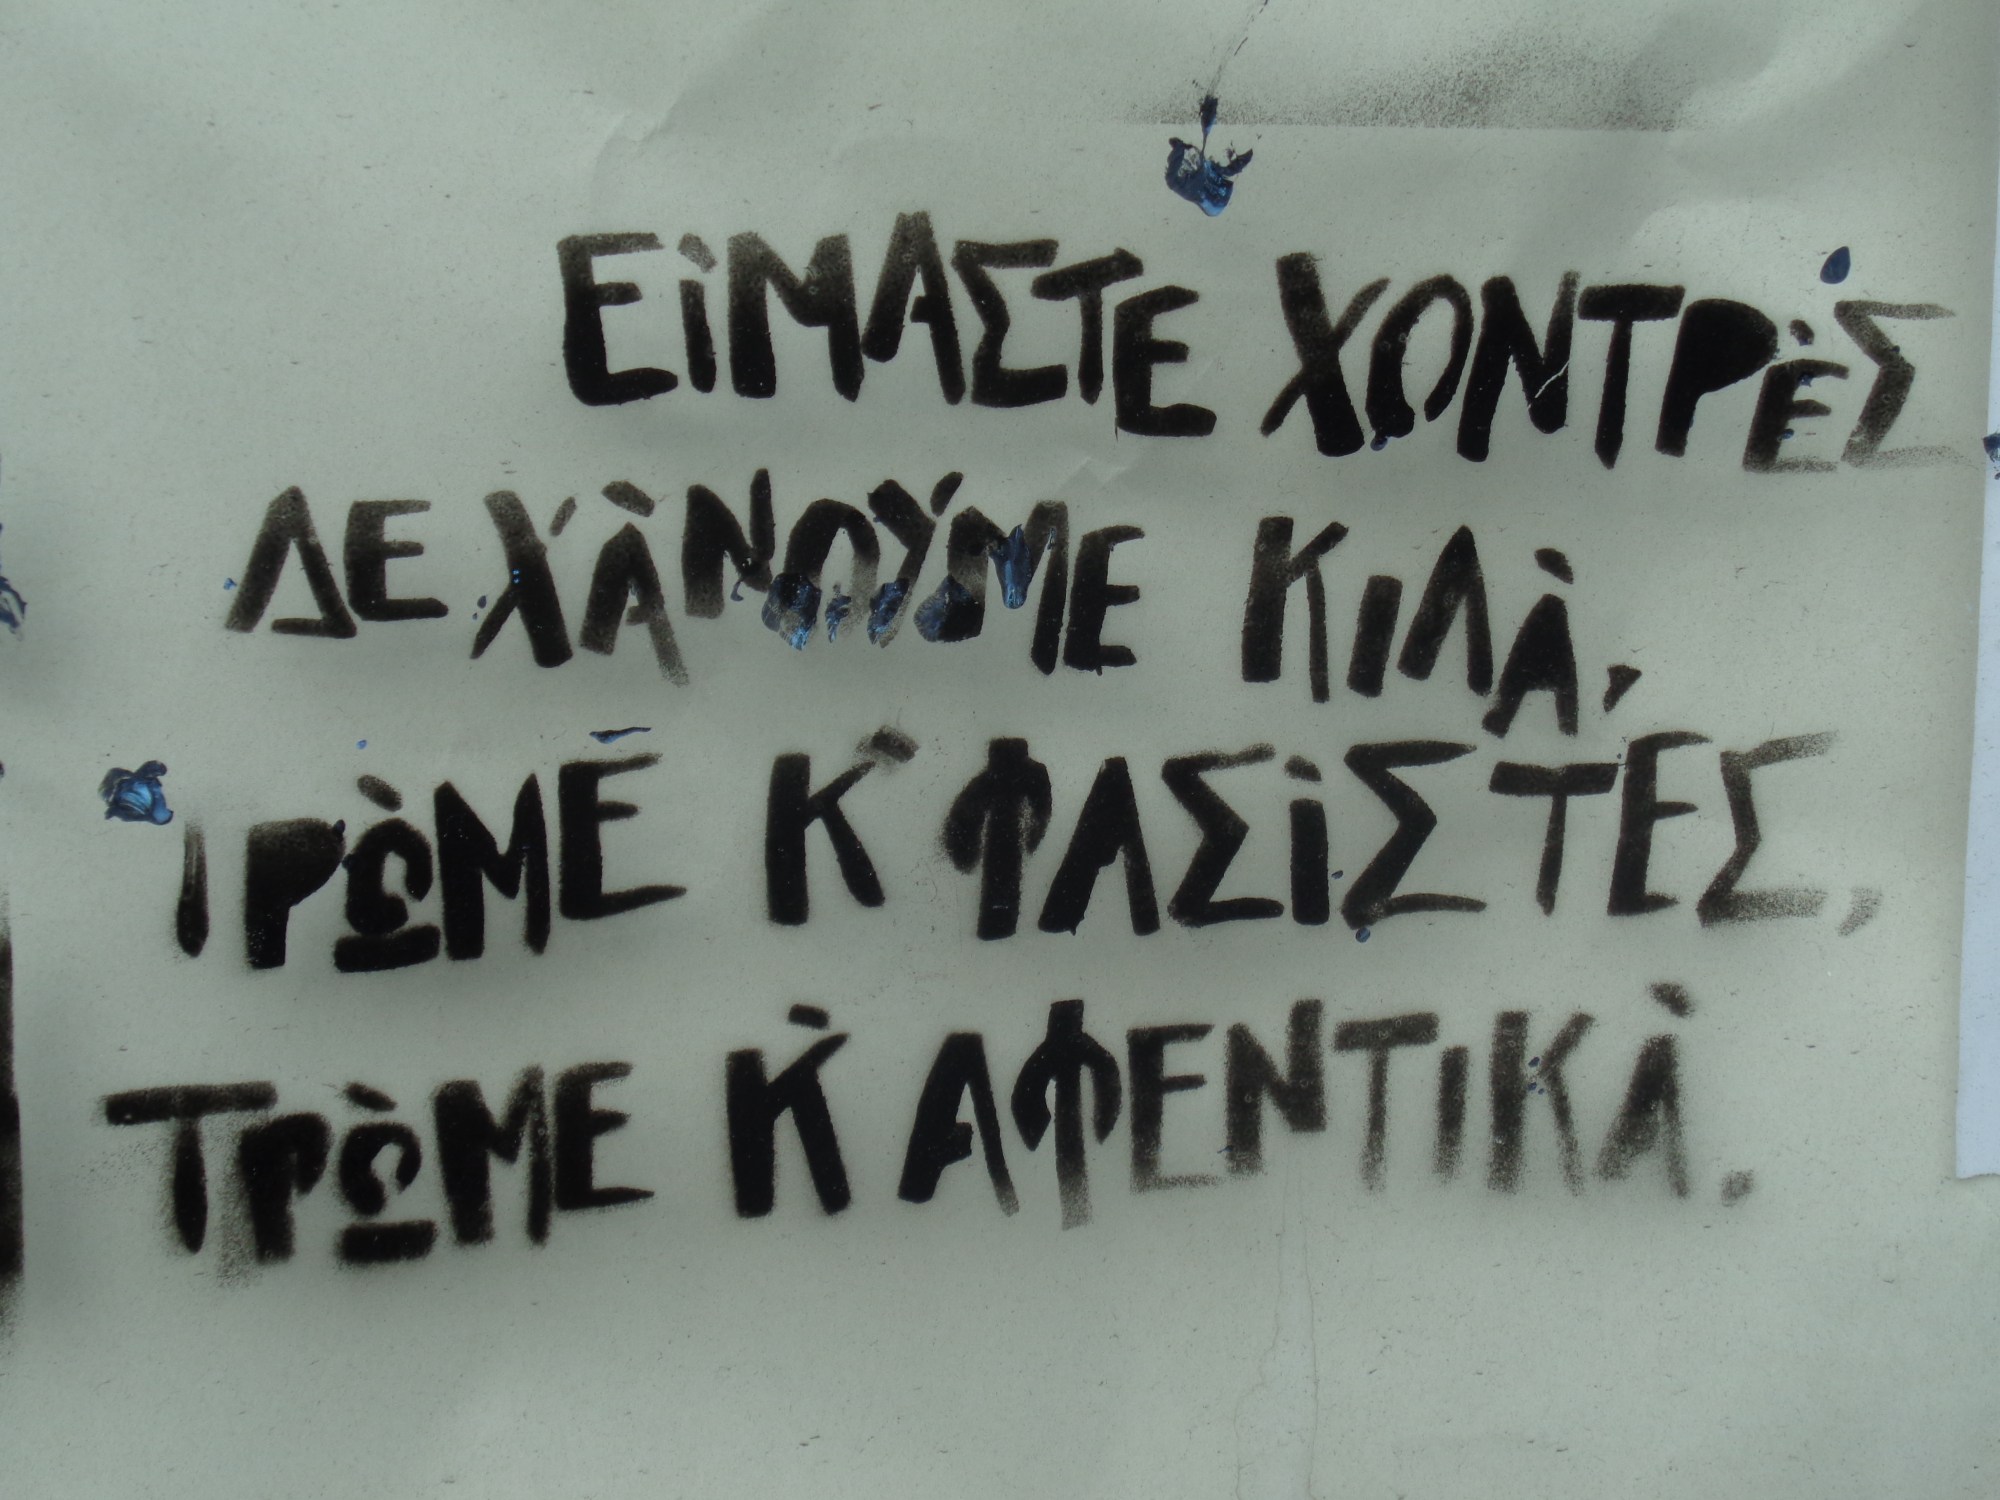 ΕΊΜΑΣΤΕ ΧΟΝΤΡΈΣ
ΔΕ ΧΆΝΟΥΜΕ ΚΙΛΆ,
ΤΡΏΜΕ Κ' ΦΑΣΊΣΤΕΣ,
ΤΡΏΜΕ Κ' ΑΦΕΝΤΙΚΆ.